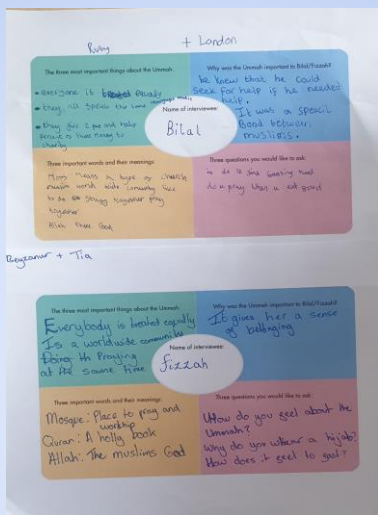 Ruby + London
The three most important things about the Ummah:
• everyone is treated equally
• they all speak the same
• they give 2.5 and help
charity
Why was the Ummah important to Bilal/Fizzah?
he knew that he could
seek for help if he needed
help.
It was a specil
Bond between
muslims.
Name of interviewee:
Bilal
Three important words and their meanings:
muslim world wide comunity like
together
Allah there God
Three questions you would like to ask:
is it
do u pray when u eat
Beyzanur + Tia
The three most important things about the Ummah:
Everybody is treated equally
Is a worldwide community
Doing th Praying
at the same time
Why was the Ummah important to Bilal/Fizzah?
It gives her a sense
of belonging
Name of interviewee:
fizzah
Three important words and their meanings:
Mosque: Place to pray and
worship
Quran: A holly book
Allah: The muslims God
Three questions you would like to ask:
How do you feel about the
Ummah?
Why do you whear a hijab?
How does it feel to fast?